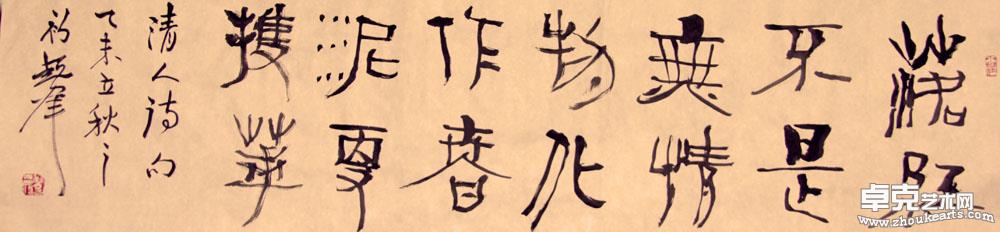 落紅
不是
無情
物化
作春
泥更
護華
清人詩句
未立秋之
初
卓克艺术网
www.zhoukearts.com